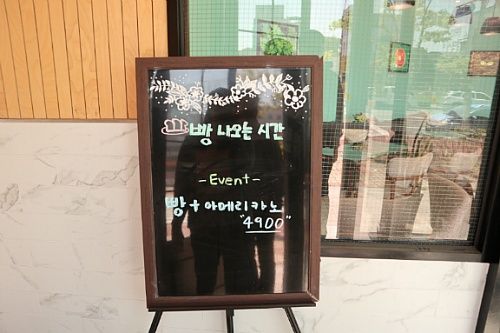 빵 나오는 시간
-Event-
빵 + 아메리카노
"4900"